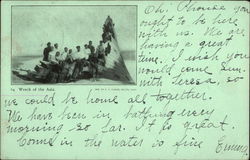 Oh. Choose you
ought to be here
with us. We are
having a great
time. I wish you
would come Sun.
with teresa, so
14 Wreck of the Ada
we could be home all together.
We have been in bathing every
morning so far. It is great.
Come in the water so fine